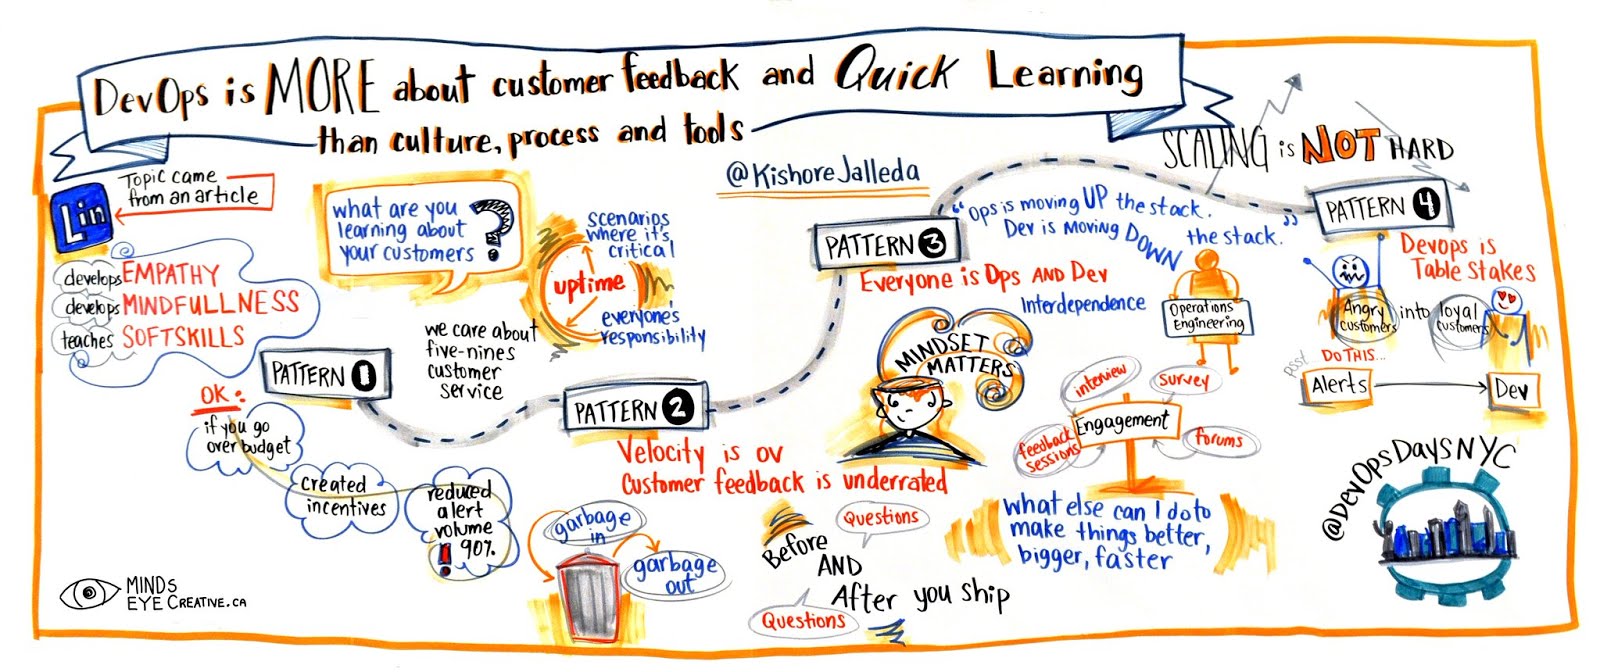 DevOps is MORE about customer feedback and Quick Learning
than culture, process and tools
@KishoreJalleda
SCALING is NOT HARD
Lin
Topic came
from an article
develops EMPATHY
develops MINDFULLNESS
teaches SOFTSKILLS
what are you
learning about
your customers ?
scenarios
where it's
critical
uptime
everyone's
responsibility
we care about
five-nines
customer
service
PATTERN 1
OK:
if you go
over budget
created
incentives
reduced
alert
volume
90%
!
PATTERN 2
Velocity is ov
Customer feedback is underrated
garbage
in
garbage
out
Questions
Before
AND
After you ship
Questions
PATTERN 3
"Ops is moving UP the stack.
Dev is moving DOWN the stack."
Everyone is Ops AND Dev
Interdependence
Operations
Engineering
MINDSET
MATTERS
interview
survey
Engagement
feedback
sessions
forums
what else can I do to
make things better,
bigger, faster
PATTERN 4
Devops is
Table Stakes
Angry
customers
into
loyal
customers
psst
DO THIS...
Alerts
Dev
@DevOpsDaysNYC
MINDS
EYE CREATIVE.CA